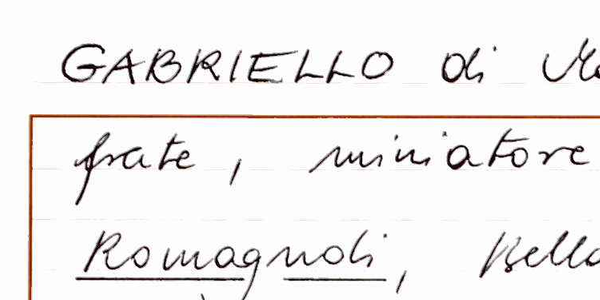 GABRIELLO di
frate, miniatore
Romagnoli, Bella